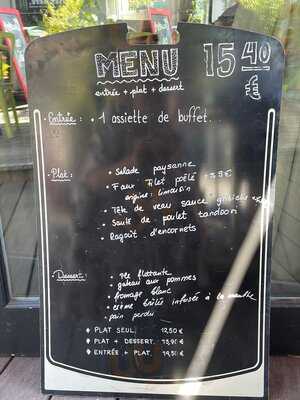 MENU 15 40 €
entrée + plat + dessert
Entrée : • 1 assiette de buffet...
Plat : • Salade paysanne
• Faux Filet poêlé
origine : limousin
• Tête de veau sauce
• Sauté de poulet tandoori
• Ragoût d'encornets
Dessert : • île flottante
• gateau aux pommes
• fromage blanc
• crème brûlée infusée à la menthe
• pain perdu
♦ PLAT SEUL. 12,50 €
♦ PLAT + DESSERT. 13,90 €
♦ ENTRÉE + PLAT. 14,50 €